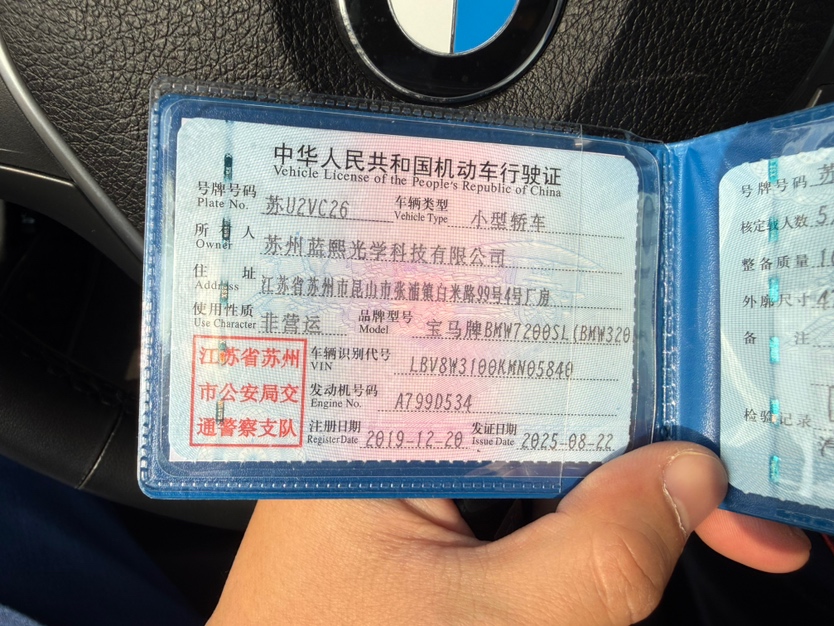 中华人民共和国机动车行驶证
Vehicle License of the People's Republic of China
号牌号码 苏U2VC26 车辆类型 小型轿车
Plate No. Vehicle Type
所有人 苏州蓝熙光学科技有限公司
Owner
住址 江苏省苏州市昆山市张浦镇白米路99号4号厂房
Address
使用性质 非营运 品牌型号 宝马牌BMW7200SL(BMW320
Use Character Model
江苏省苏州
市公安局交
通警察支队
车辆识别代号 LBV8W3100KMN05840
VIN
发动机号码 A799D534
Engine No.
注册日期 2019-12-20 发证日期 2025-08-22
Register Date Issue Date
号牌号码 苏
核定载人数 5
整备质量
外廓尺寸
备注
检验记录